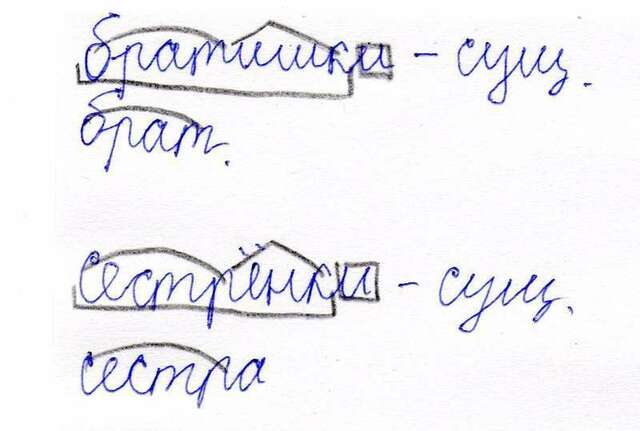 братишки - сущ.
брат.
сестрёнки - сущ.
сестра